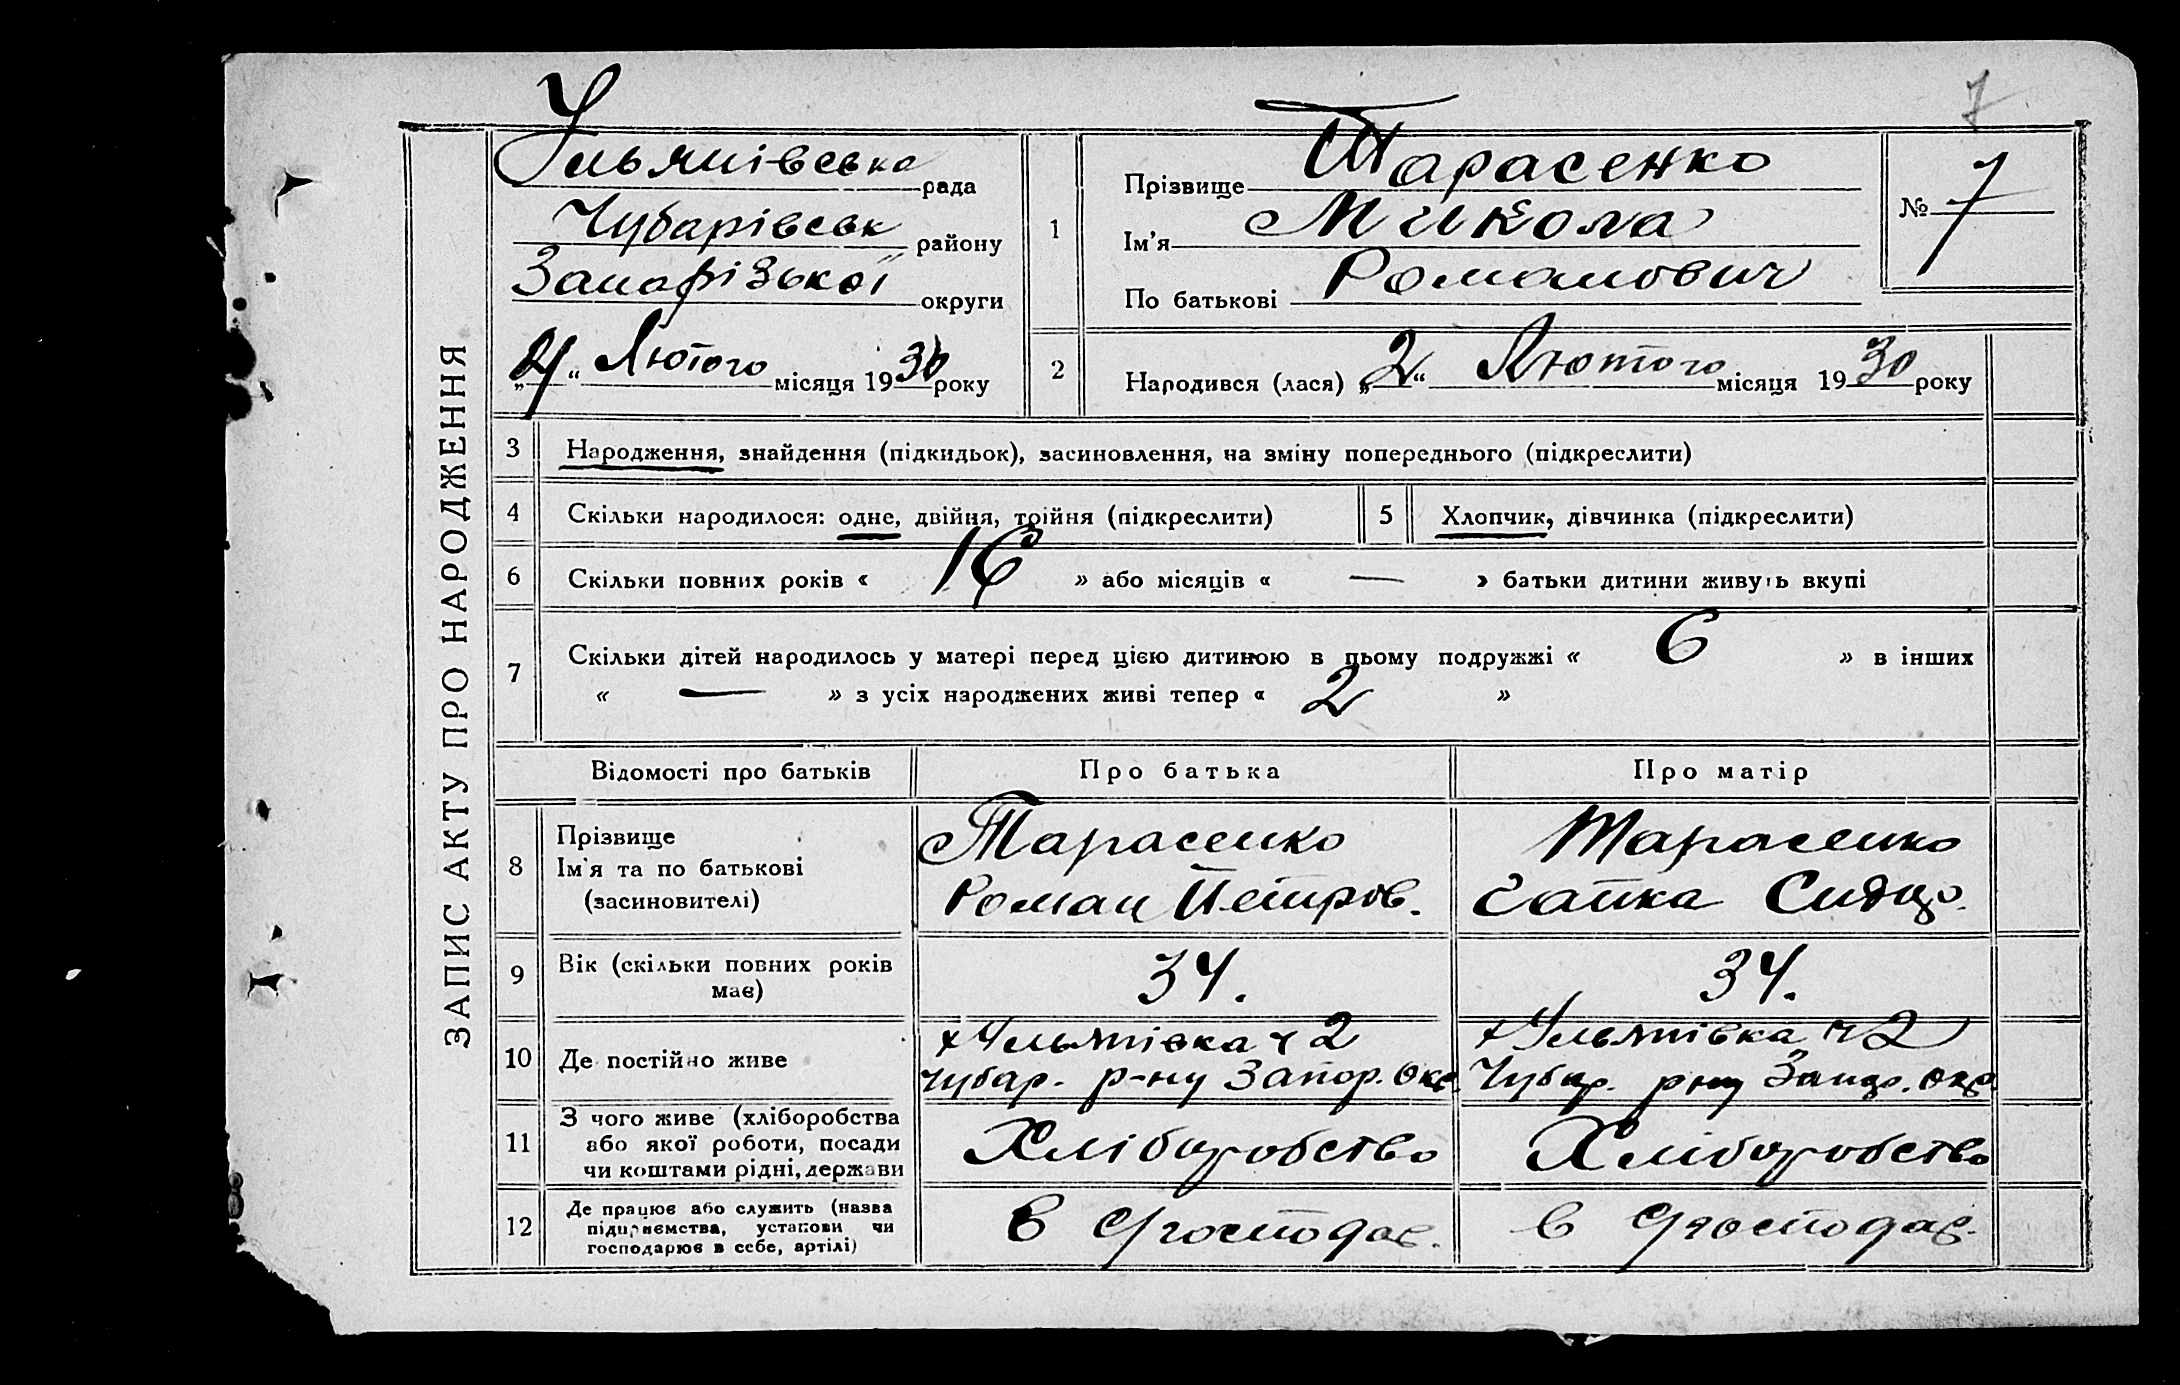 7
Ульянівська рада
Чубарівськ району
Запорізької округи
„4“ Лютого місяця 1930 року
1
Прізвище Тарасенко
Ім’я Микола
По батькові Романович
№ 7
2
Народився (лася) „2“ Лютого місяця 1930 року
ЗАПИС АКТУ ПРО НАРОДЖЕННЯ
3 Народження, знайдення (підкидьок), засиновлення, на зміну попереднього (підкреслити)
4 Скільки народилося: одне, двійня, трійня (підкреслити)
5 Хлопчик, дівчинка (підкреслити)
6 Скільки повних років « 16 » або місяців « — » батьки дитини живуть вкупі
7 Скільки дітей народилось у матері перед цією дитиною в цьому подружжі « 6 » в інших
« — » з усіх народжених живі тепер « 2 »
Відомості про батьків
Про батька
Про матір
8
Прізвище
Ім'я та по батькові
(засиновителі)
Тарасенко
Роман Петров.
Тарасенко
9
Вік (скільки повних років
має)
34.
34.
10 Де постійно живе
х Ульянівка ч 2
Чубар. р-ну Запор. окр.
х Ульянівка ч 2
Чубар. р-ну Запор. окр.
11
З чого живе (хліборобства
або якої роботи, посади
чи коштами рідні, держави
Хліборобство
Хліборобство
12
Де працює або служить (назва
підприємства, установи чи
господарює в себе, артілі)
в господар.
в господар.